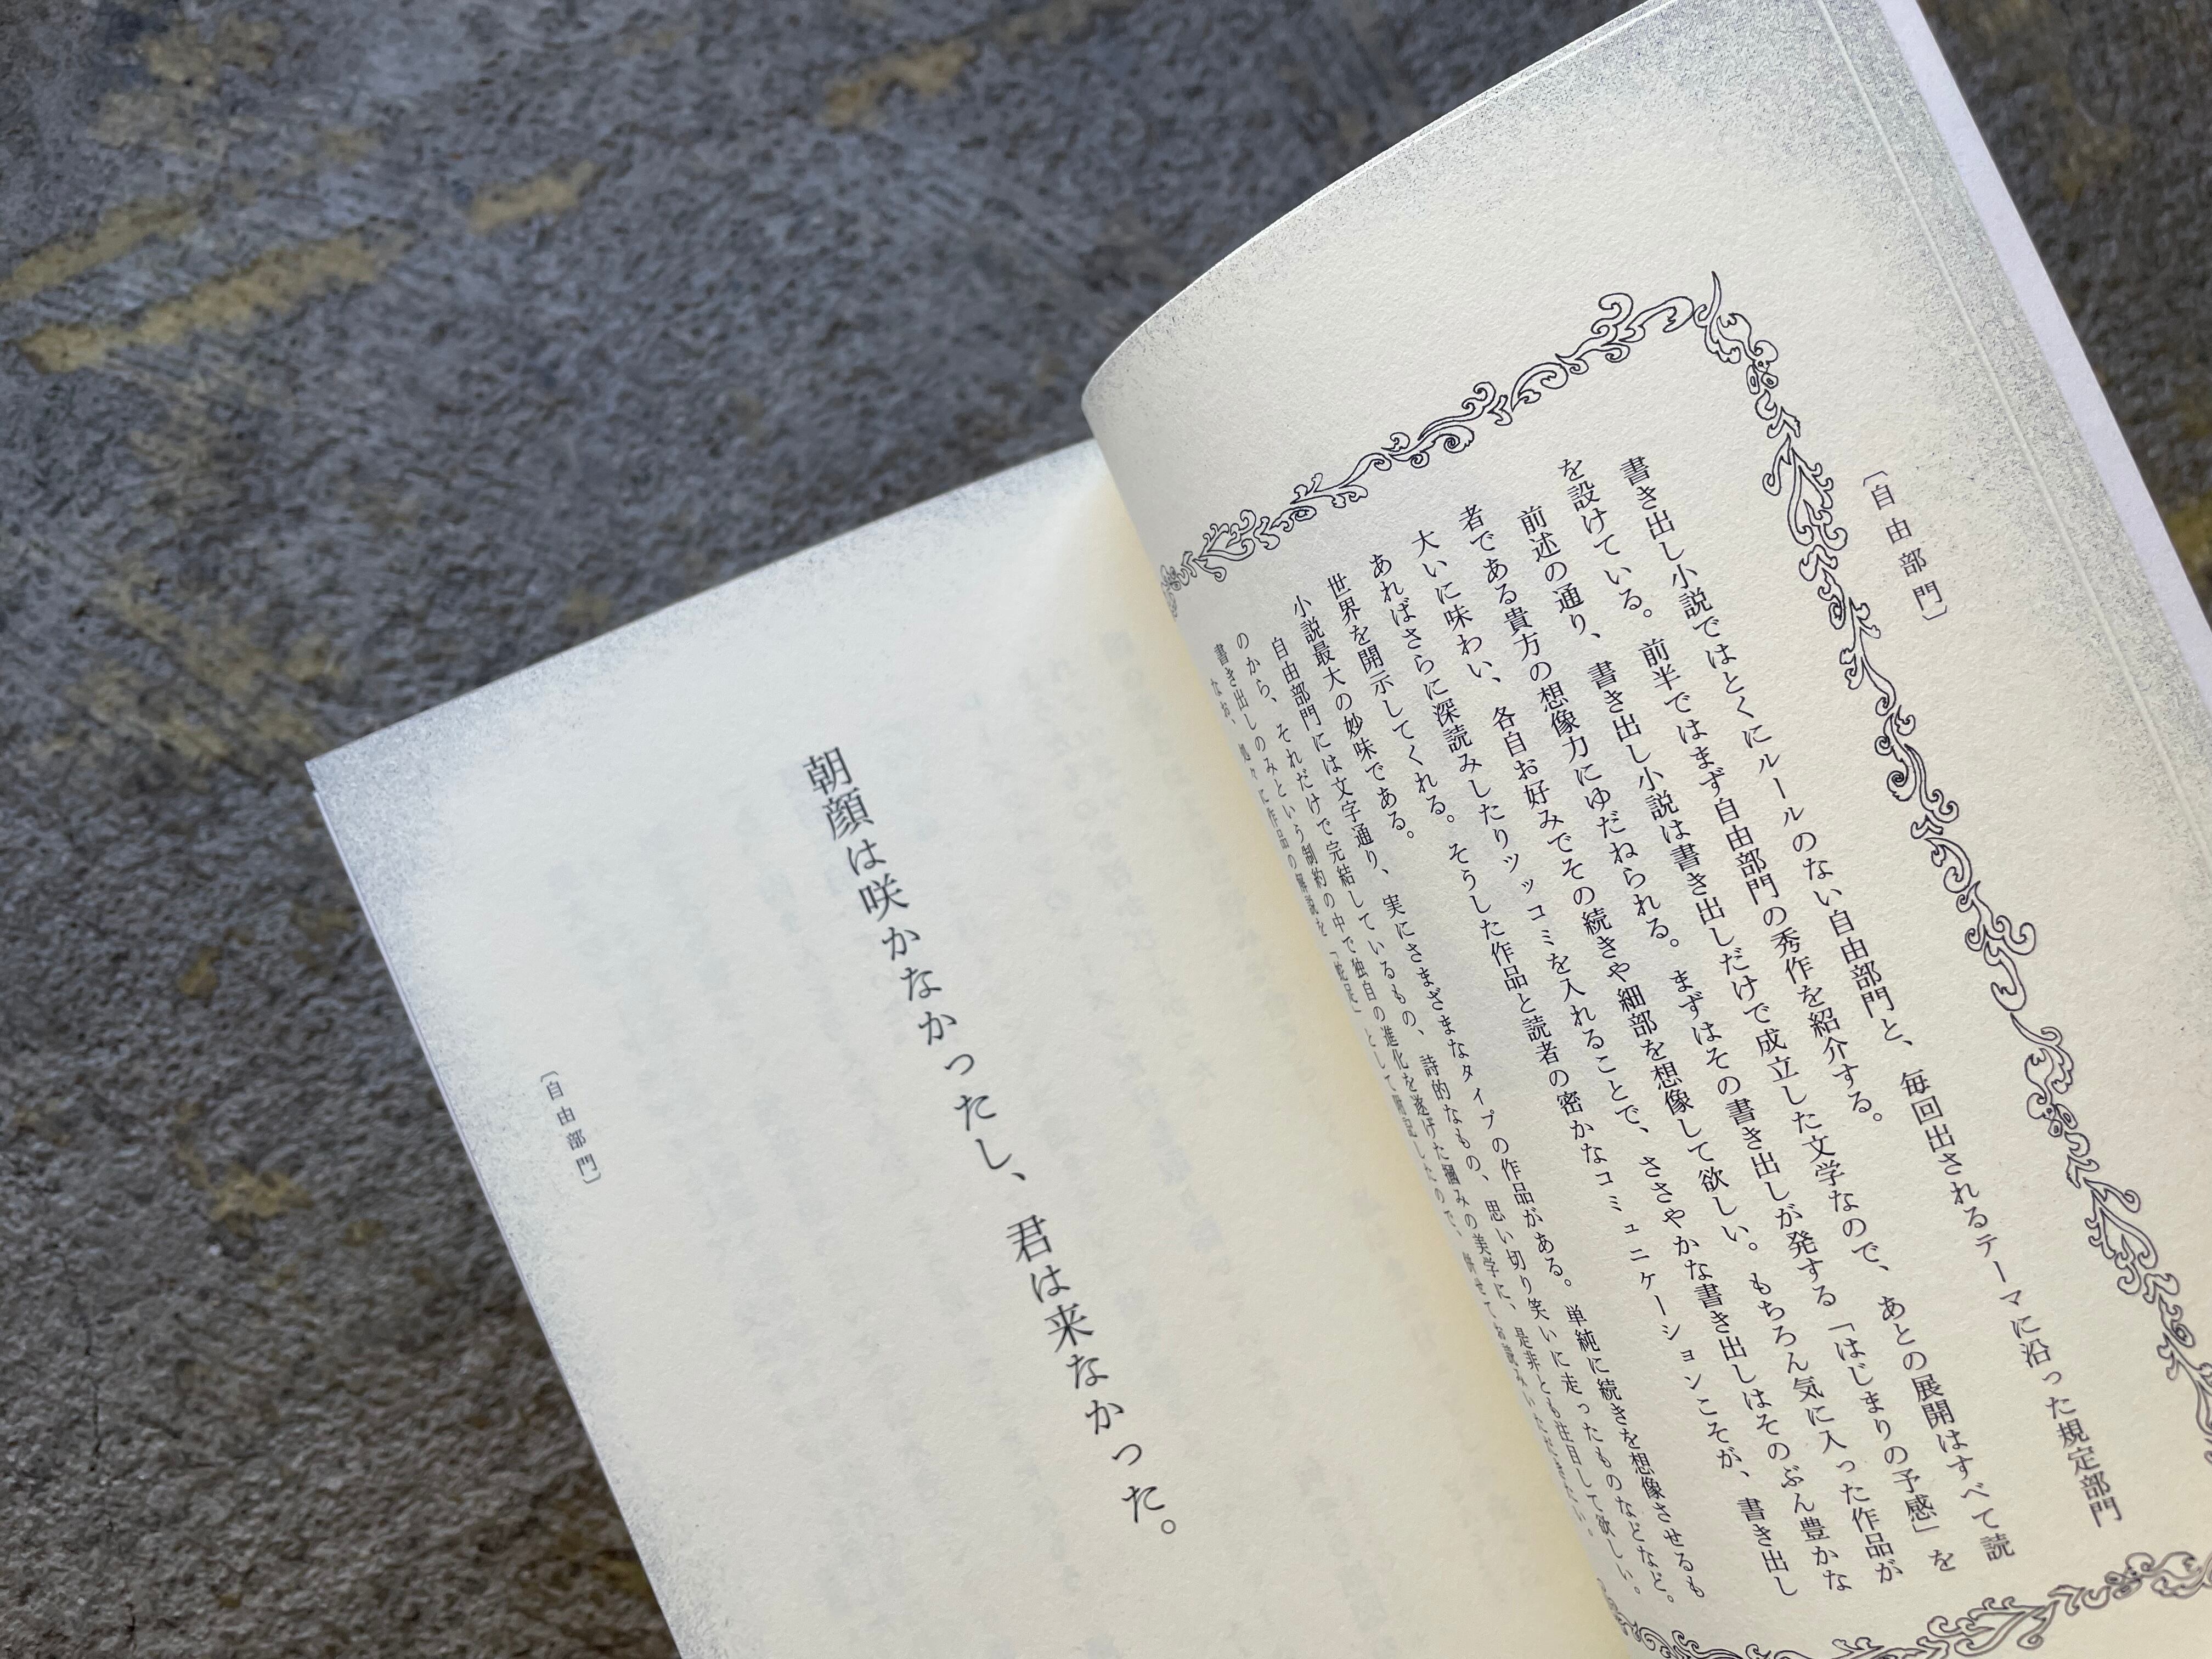 〔自由部門〕
書き出し小説ではとくにルールのない自由部門と、毎回出されるテーマに沿った規定部門
を設けている。前半ではまず自由部門の秀作を紹介する。
前述の通り、書き出し小説は書き出しだけで成立した文学なので、あとの展開はすべて読
者である貴方の想像力にゆだねられる。まずはその書き出しが発する「はじまりの予感」を
大いに味わい、各自お好みでその続きや細部を想像して欲しい。もちろん気に入った作品が
あればさらに深読みしたりツッコミを入れることで、ささやかな書き出しはそのぶん豊かな
世界を開示してくれる。そうした作品と読者の密かなコミュニケーションこそが、書き出し
小説最大の妙味である。
自由部門には文字通り、実にさまざまなタイプの作品がある。単純に続きを想像させるも
のから、それだけで完結しているもの、詩的なもの、思い切り笑いに走ったものなどなど。
書き出しのみという制約の中で独自の進化を遂げた掴みの美学に、是非とも注目して欲しい。
なお、処々に作品の解説を「蛇足」として付記したので、併せてお読みいただきたい。
朝顔は咲かなかったし、君は来なかった。
〔自由部門〕